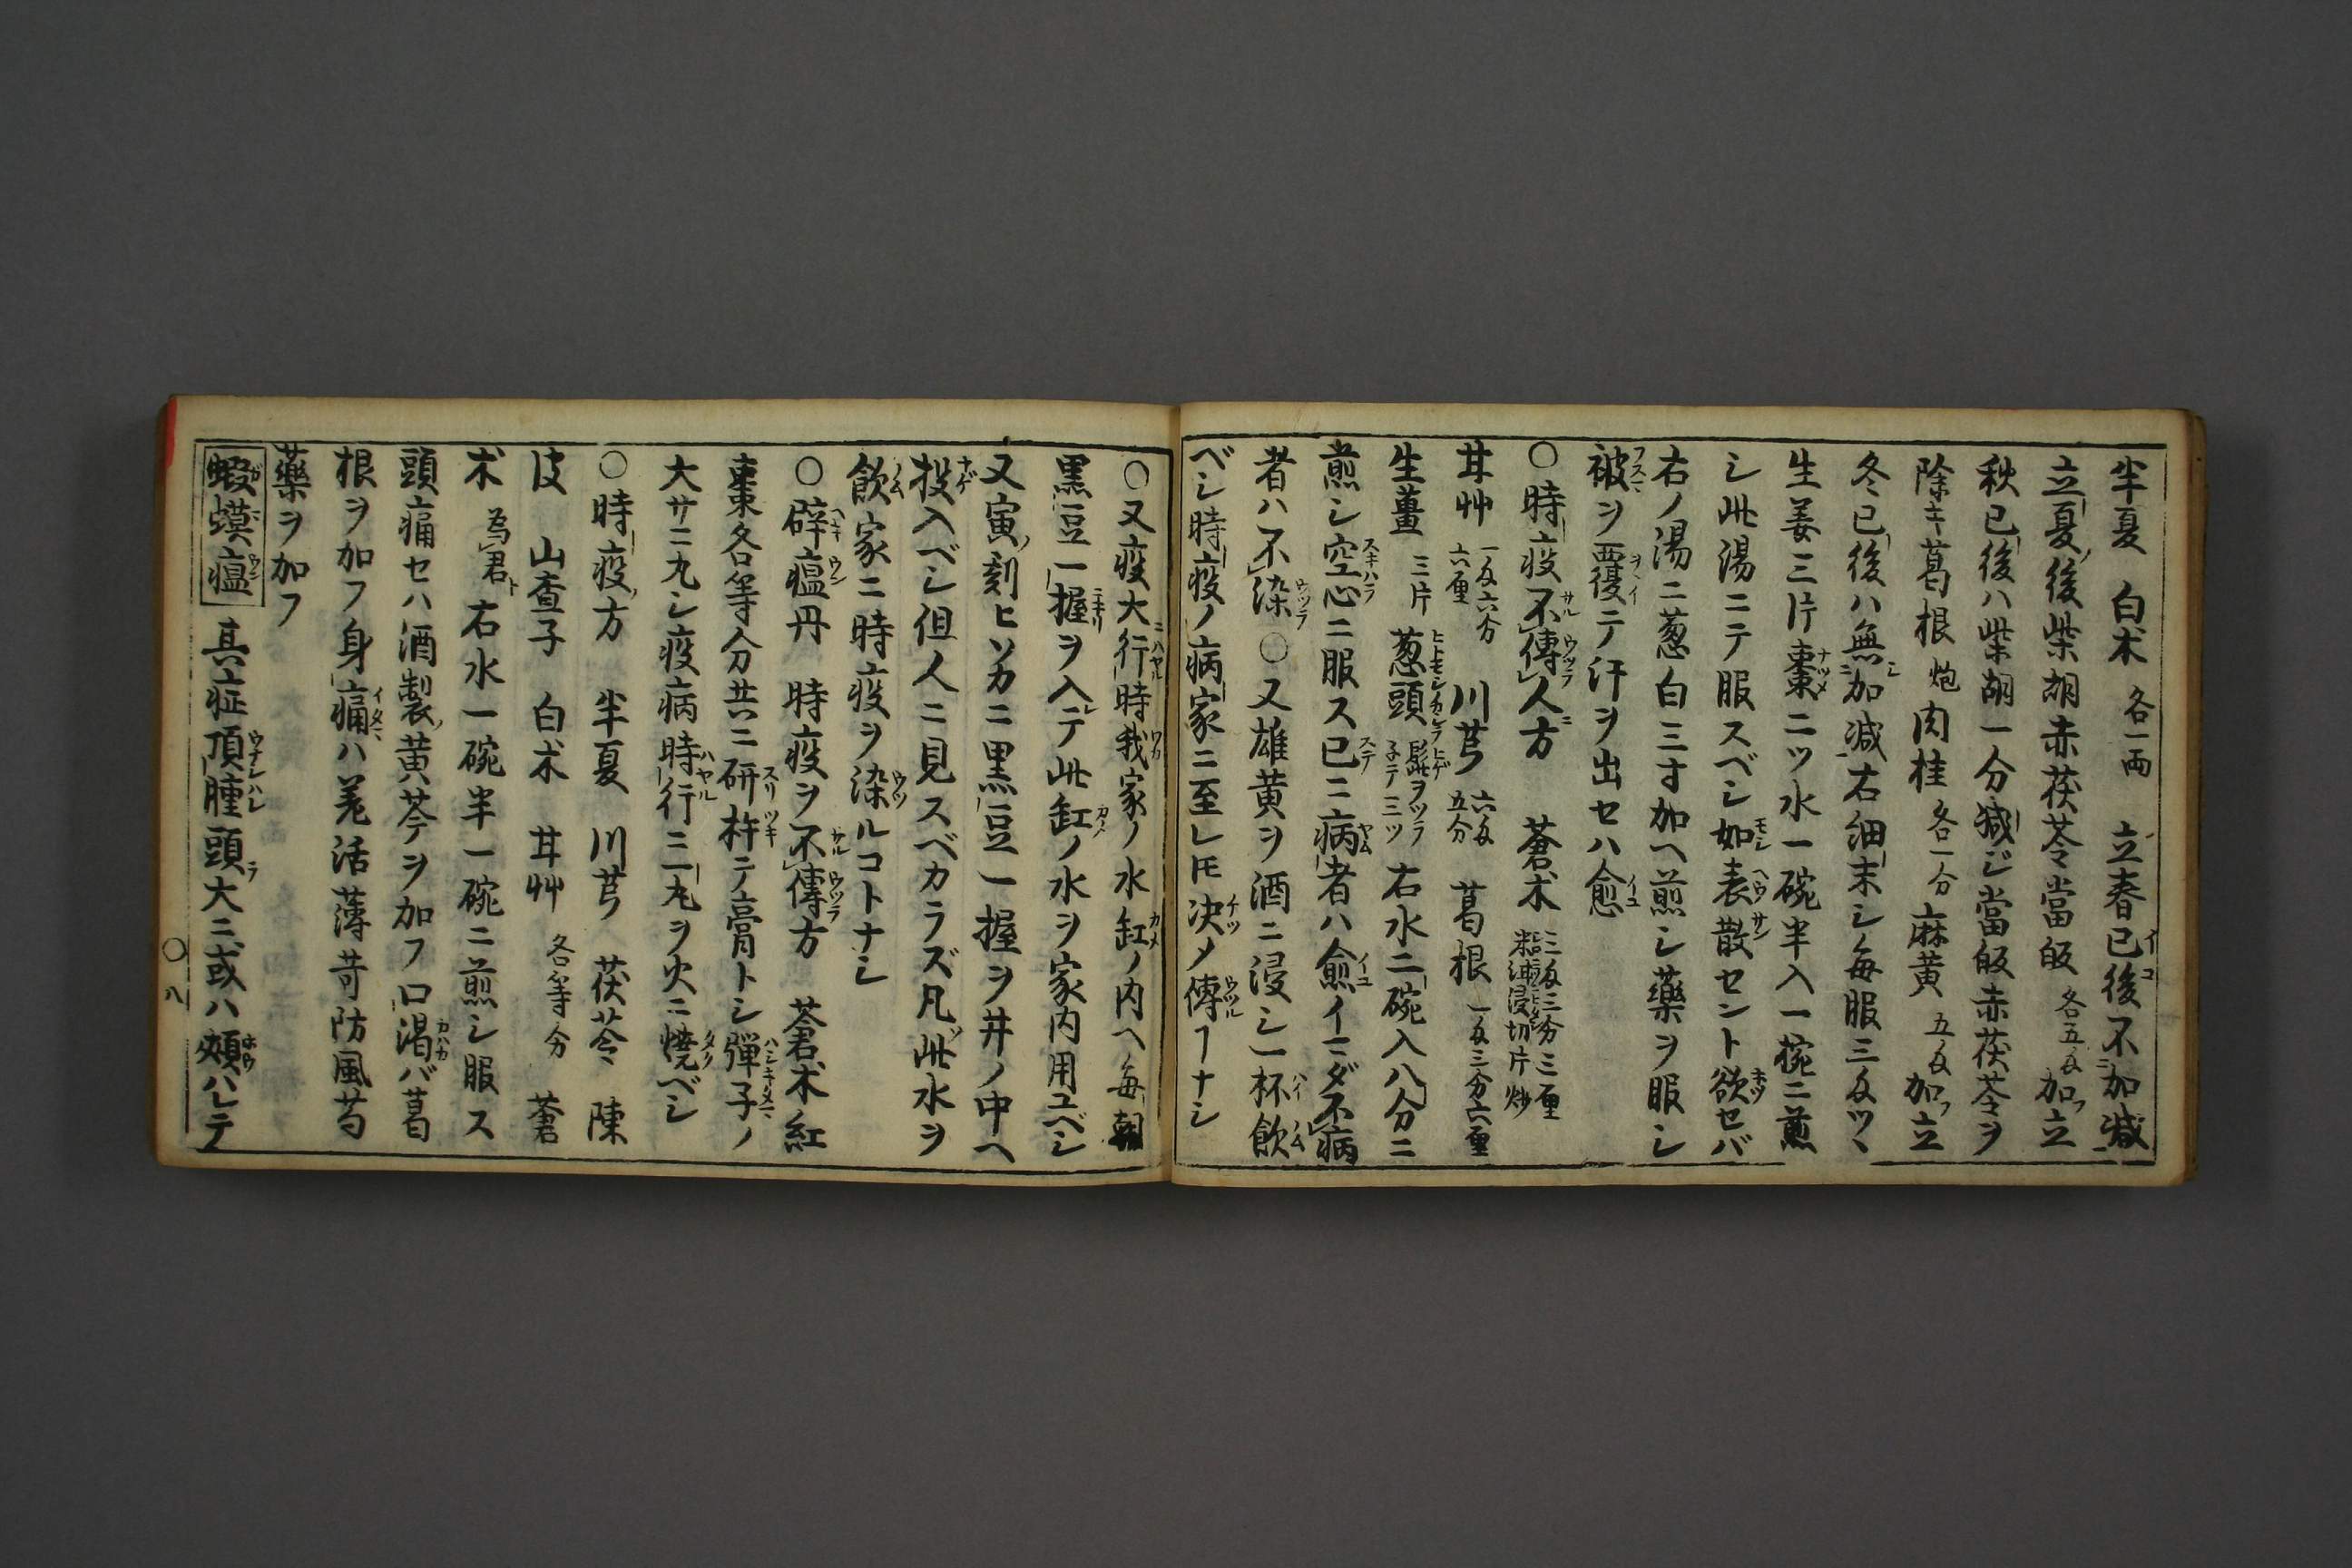 半夏　白朮　各一両　立春已後不加減
立夏ノ後柴胡赤茯苓當皈各五匁加フ立
秋已後ハ柴胡一分減ジ當皈赤茯苓ヲ
除キ葛根炮肉桂各一分麻黄五匁加フ立
冬已後ハ無加減右細末シ毎服三匁ツヽ
生姜三片棗二ツ水一碗半入一椀ニ煎
シ此湯ニテ服スベシ如表散セント欲セバ
右ノ湯ニ葱白三寸加ヘ煎シ藥ヲ服シ
被ヲ覆テ汗ヲ出セハ愈
○時疫不傳人方　蒼朮三匁三分三厘米泔浸切片炒
甘艸一匁六分六厘　川芎六匁五分　葛根一匁三分六厘
生薑三片　葱頭髭ヲツラ子テ三ツ　右水二碗入八分ニ
煎シ空心ニ服ス已ニ病者ハ愈イマダ不病
者ハ不染○又雄黄ヲ酒ニ浸シ一杯飲
ベシ時疫ノ病家ニ至レ𪜈决メ傳ヿナシ
○又疫大行時我家ノ水缸ノ内ヘ毎朝
黒豆一握ヲ入テ此缸ノ水ヲ家内用ユベシ
又寅ノ刻ヒソカニ黒豆一握ヲ井ノ中ヘ
投入ベシ但人ニ見スベカラズ凡此水ヲ
飲家ニ時疫ヲ染ルコトナシ
○辟瘟丹　時疫ヲ不傳方　蒼朮紅
棗各等分共ニ研杵テ膏トシ彈子ノ
大サニ丸シ疫病時行ニ一丸ヲ火ニ焼ベシ
○時疫ノ方　半夏　川芎　茯苓　陳
皮　山査子　白朮　甘艸各等分　蒼
朮為君右水一碗半一碗ニ煎シ服ス
頭痛セハ酒製ノ黄芩ヲ加フ口渇バ葛
根ヲ加フ身痛ハ羌活薄荷防風芍
藥ヲ加フ
蝦蟆瘟　其症項腫頭大ニ或ハ頬ハレテ
○八